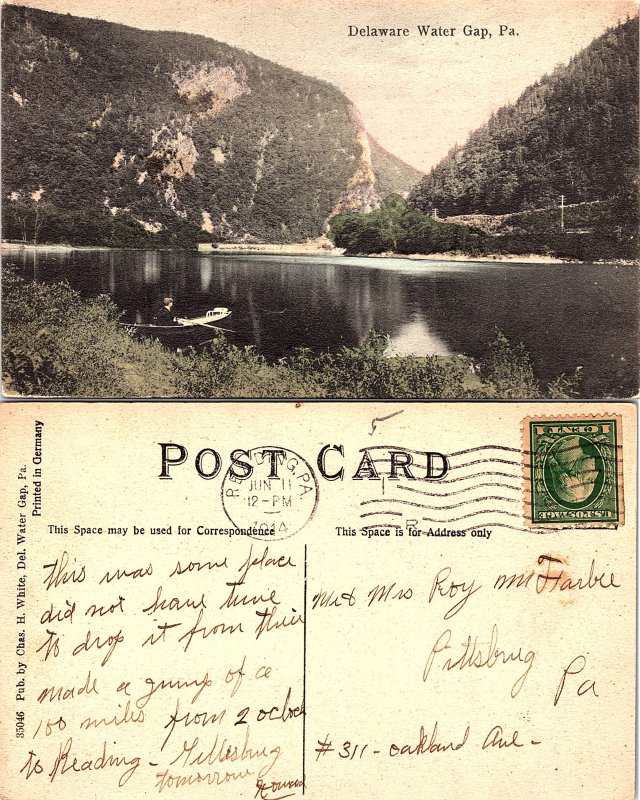 Delaware Water Gap, Pa.
POST CARD
READING, PA.
JUN 11
12-PM
1914
5
1 CENT 1
U.S. POSTAGE
This Space may be used for Correspondence
This Space is for Address only
This was some place
did not have time
to drop it from their
made a jump of a
100 miles from 2 oclock
to Reading - Gettsbug
tomorrow
Howard
Mr & Mrs Roy McFarlie
Pittsburg
Pa
#311 - Oakland Ave -
35046 Pub. by Chas. H. White, Del. Water Gap, Pa.
Printed in Germany